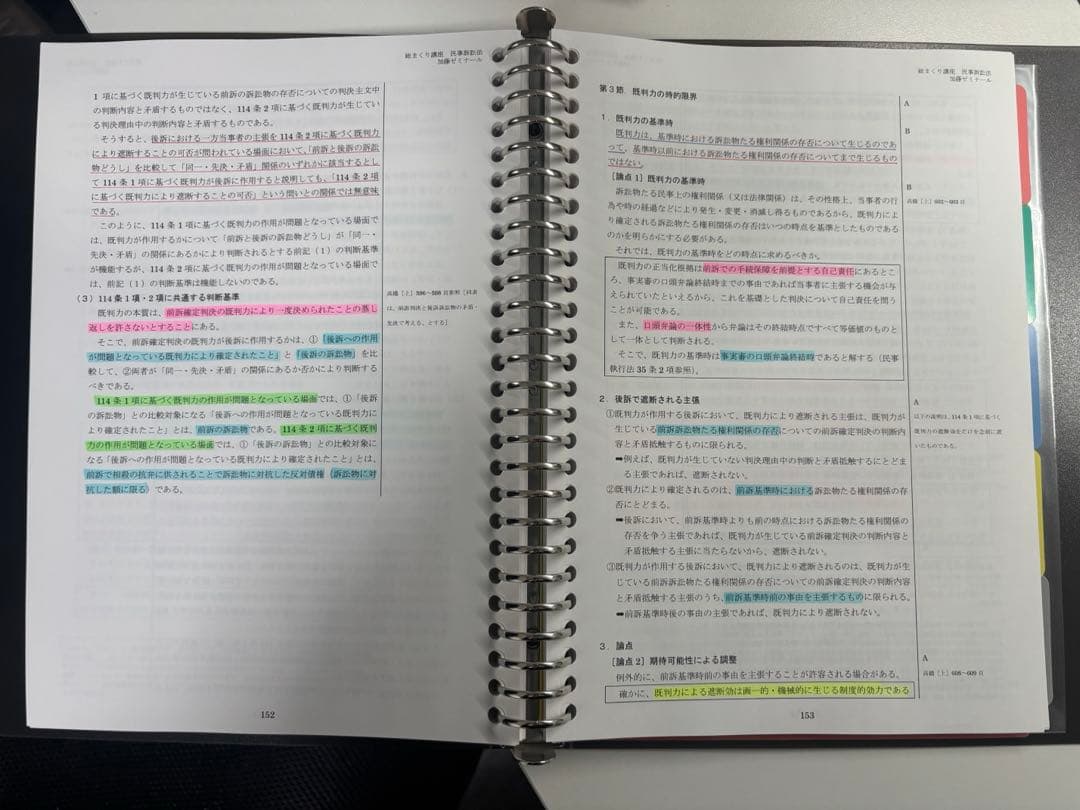 総まくり講座　民事訴訟法
加藤ゼミナール
1 項に基づく既判力が生じている前訴の訴訟物の存否についての判決主文中
の判断内容と矛盾するものではなく、114 条 2 項に基づく既判力が生じてい
る判決理由中の判断内容と矛盾するものである。
そうすると、後訴における一方当事者の主張を 114 条 2 項に基づく既判力
により遮断することの可否が問われている場面において、「前訴と後訴の訴訟
物どうし」を比較して「同一・先決・矛盾」関係のいずれかに該当するとし
て 114 条 1 項に基づく既判力が後訴に作用すると説明しても、「114 条 2 項
に基づく既判力により遮断することの可否」という問いとの関係では無意味
である。
このように、114 条 1 項に基づく既判力の作用が問題となっている場面で
は、既判力が作用するかについて「前訴と後訴の訴訟物どうし」が「同一・
先決・矛盾」の関係にあるかにより判断されるとする前記（1）の判断基準
が機能するが、114 条 2 項に基づく既判力の作用が問題となっている場面で
は、前記（1）の判断基準は機能しないのである。
（3）114 条 1 項・2 項に共通する判断基準
既判力の本質は、前訴確定判決の既判力により一度決められたことの蒸し
返しを許さないとすることにある。
そこで、前訴確定判決の既判力が後訴に作用するかは、①「後訴への作用
が問題となっている既判力により確定されたこと」と「後訴の訴訟物」を比
較して、②両者が「同一・先決・矛盾」の関係にあるか否かにより判断する
べきである。
114 条 1 項に基づく既判力の作用が問題となっている場面では、①「後訴
の訴訟物」との比較対象になる「後訴への作用が問題となっている既判力に
より確定されたこと」とは、前訴の訴訟物である。114 条 2 項に基づく既判
力の作用が問題となっている場面では、①「後訴の訴訟物」との比較対象に
なる「後訴への作用が問題となっている既判力により確定されたこと」とは、
前訴で相殺の抗弁に供されることで訴訟物に対抗した反対債権（訴訟物に対
抗した額に限る）である。
152
総まくり講座　民事訴訟法
加藤ゼミナール
第 3 節．既判力の時的限界
A
1．既判力の基準時
B
既判力は、基準時における訴訟物たる権利関係の存否について生じるのであ
って、基準時以前における訴訟物たる権利関係の存否についてまで生じるもの
ではない。
［論点 1］既判力の基準時
B
訴訟物たる民事上の権利関係（又は法律関係）は、その性格上、当事者の行
高橋［上］602～603 頁
為や時の経過などにより発生・変更・消滅し得るものであるから、既判力によ
り確定される訴訟物たる権利関係の存否はいつの時点を基準としたものである
のかを明らかにする必要がある。
それでは、既判力の基準時をどの時点に求めるべきか。
既判力の正当化根拠は前訴での手続保障を前提とする自己責任にあるとこ
ろ、事実審の口頭弁論終結時までの事由であれば当事者に主張する機会が与
えられていたといえるから、これを基礎とした判決について自己責任を問う
ことが可能である。
また、口頭弁論の一体性から弁論はその終結時点ですべて等価値のものと
して一体として判断される。
そこで、既判力の基準時は事実審の口頭弁論終結時であると解する（民事
執行法 35 条 2 項参照）。
2．後訴で遮断される主張
A
①既判力が作用する後訴において、既判力により遮断される主張は、既判力が
以下の説明は、114 条 1 項に基づく
生じている前訴訴訟物たる権利関係の存否についての前訴確定判決の判断内
容と矛盾抵触するものに限られる。
➡例えば、既判力が生じていない判決理由中の判断と矛盾抵触するにとどま
る主張であれば、遮断されない。
②既判力により確定されるのは、前訴基準時における訴訟物たる権利関係の存
否にとどまる。
➡後訴において、前訴基準時よりも前の時点における訴訟物たる権利関係の
存否を争う主張であれば、既判力が生じている前訴確定判決の判断内容と
矛盾抵触する主張に当たらないから、遮断されない。
③既判力が作用する後訴において、既判力により遮断されるのは、既判力が生
じている前訴訴訟物たる権利関係の存否についての前訴確定判決の判断内容
と矛盾抵触する主張のうち、前訴基準時前の事由を主張するものに限られる。
➡前訴基準時後の事由の主張であれば、既判力により遮断されない。
3．論点
［論点 2］期待可能性による調整
A
例外的に、前訴基準時前の事由を主張することが許容される場合がある。
高橋［上］608～609 頁
確かに、既判力による遮断効は画一的・機械的に生じる制度的効力である
153